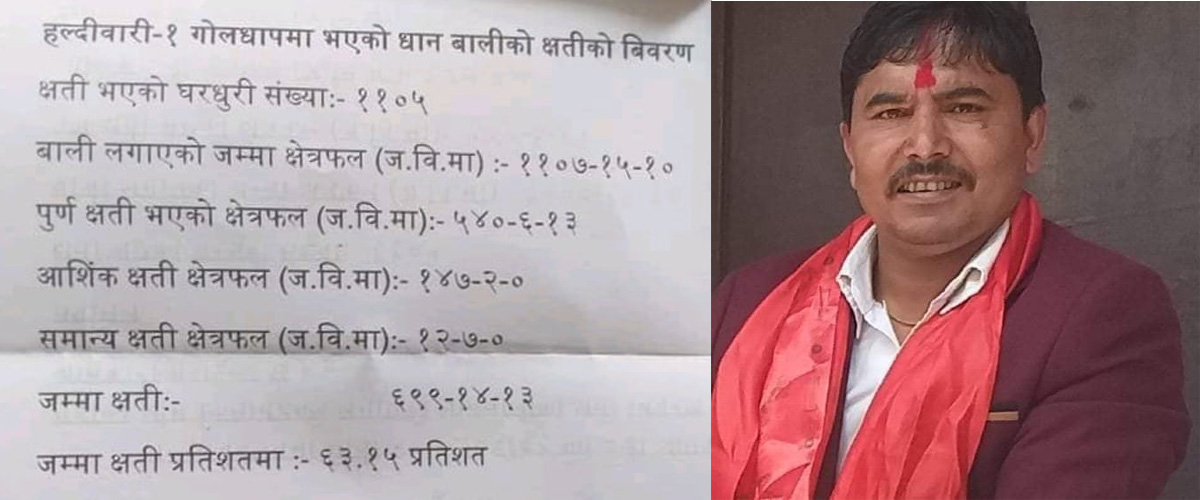 हल्दीवारी-१ गोलधापमा भएको धान बालीको क्षतीको बिवरण
क्षती भएको घरधुरी संख्या:- ११०५
बाली लगाएको जम्मा क्षेत्रफल (ज.वि.मा) :- ११०७-१५-१०
पुर्ण क्षती भएको क्षेत्रफल (ज.वि.मा):- ५४०-६-१३
आशिंक क्षती क्षेत्रफल (ज.वि.मा):- १४७-२-०
समान्य क्षती क्षेत्रफल (ज.वि.मा):- १२-७-०
जम्मा क्षती:- ६९९-१४-१३
जम्मा क्षती प्रतिशतमा :- ६३.१५ प्रतिशत